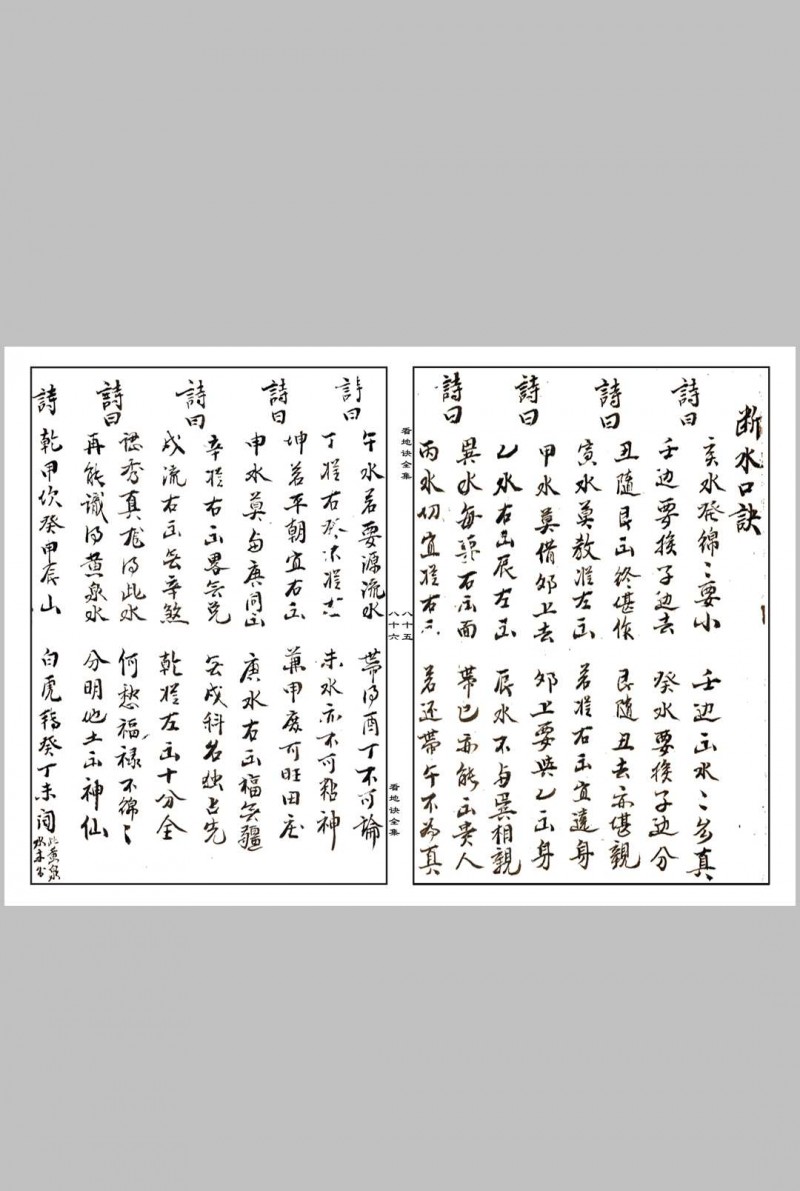 断水口訣
詩曰
亥水發綿〻要小 壬边出水〻為真
壬边要挨子边去 癸水要挨子边分
詩曰
丑隨艮出終堪作 艮隨丑去亦堪親
寅水莫教從左出 若從右出宜遠身
詩曰
甲水莫借卯上去 卯上要與乙出身
乙水右出辰左出 辰水不与巽相親
詩曰
巽水每 右出面 帶巳亦能出貴人
丙水切宜從右 若还帶午不為真
看地诀全集
八十五
八十六
看地诀全集
詩曰
午水若要源流水 帶得酉丁不可論
丁從右癸未從 未水亦不可 神
坤若平朝宜右出 兼甲度可旺田庄
詩曰
申水莫与庚同出 庚水右出福無疆
詩曰
辛從右出畧無兇 名成科名独占先
戌流右出無辛煞 乾從左出十分全
詩曰
秀真龙得此水 何愁福禄不綿〻
再能識得黄泉水 分明他土出神仙
詩
乾甲坎癸甲辰山 白虎 癸丁未 此黄泉